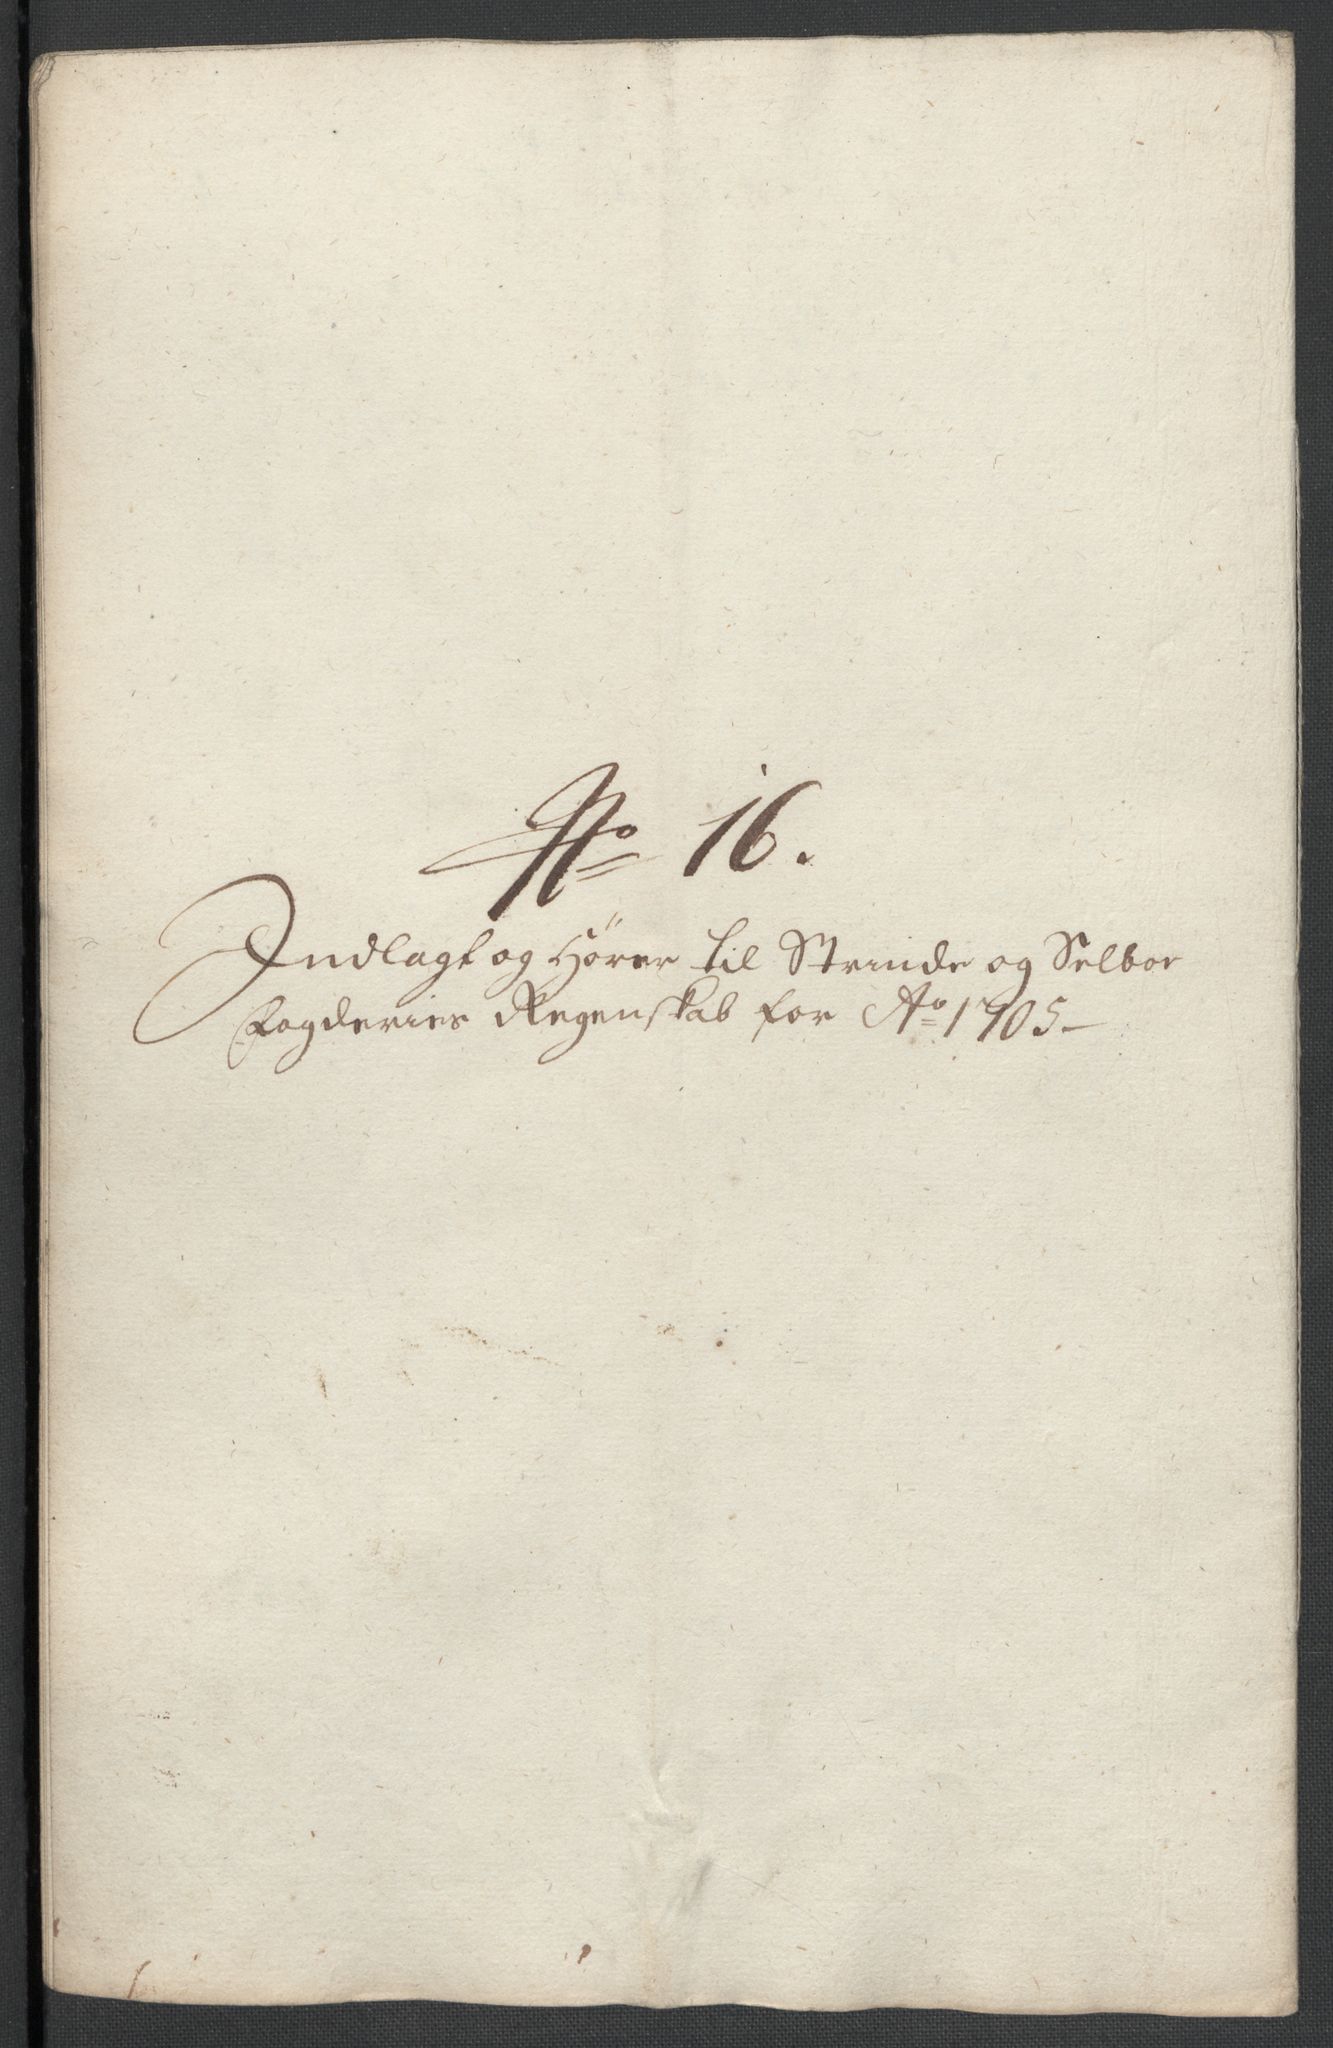 No 16.
Indlagt og Hører til Strinde og Selboe
Fogderies Regenskab for Ao 1705